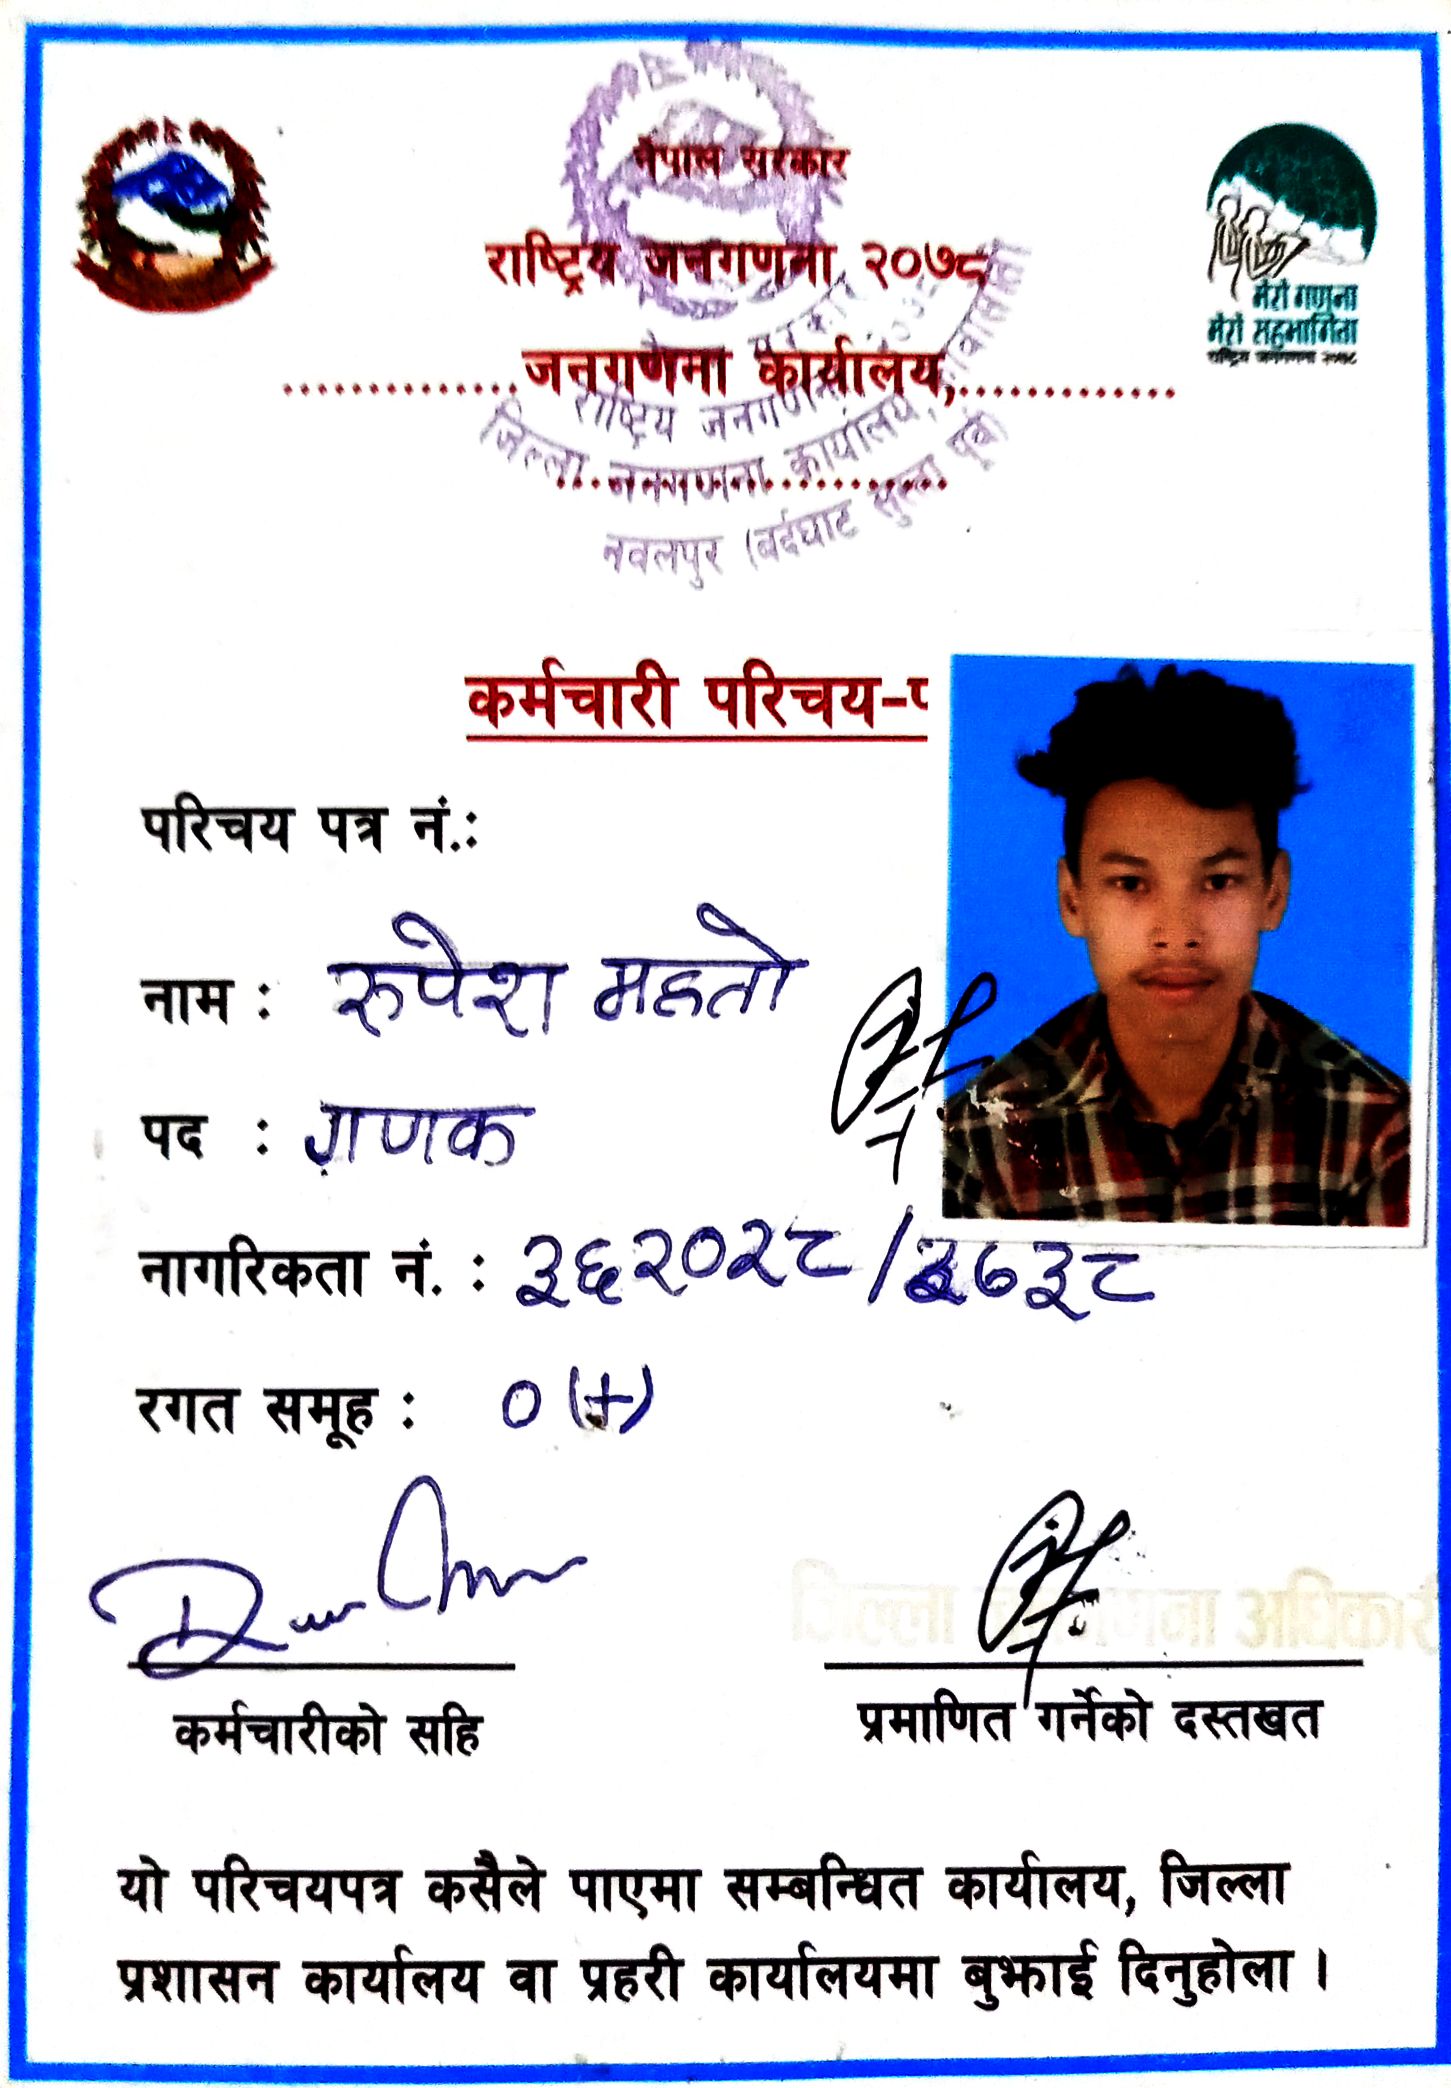 नेपाल सरकार
राष्ट्रिय जनगणना २०७८
..............जनगणना कार्यालय,..............
मेरो गणना
मेरो सहभागिता
राष्ट्रिय जनगणना २०७८
राष्ट्रिय जनगणना
जिल्ला जनगणना कार्यालय,
नवलपुर (बर्दघाट सुस्ता पूर्व)
कर्मचारी परिचय-प
परिचय पत्र नं.:
नाम : रुपेश महतो
पद : गणक
नागरिकता नं. : ३६२०२८/३७३८
रगत समूह : O (+)
जिल्ला जनगणना अधिकारी
कर्मचारीको सहि
प्रमाणित गर्नेको दस्तखत
यो परिचयपत्र कसैले पाएमा सम्बन्धित कार्यालय, जिल्ला
प्रशासन कार्यालय वा प्रहरी कार्यालयमा बुझाई दिनुहोला ।